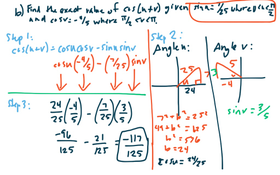 b) Find the exact value of cos(u+v) given sin u = 7/25 where 0≤u≤π/2
and cos v = -4/5 where π/2≤v≤π
Step 1:
cos(u+v) = cosu cosv - sinu sinv
cosu(-4/5) - (7/25) sinv
Step 2:
Angle u
25
7
24
7² + b² = 25²
49 + b² = 625
b² = 576
b = 24
cos u = 24/25
Angle v
3
5
-4
sin v = 3/5
Step 3:
(24/25)(-4/5) - (7/25)(3/5)
-96/125 - 21/125 = -117/125